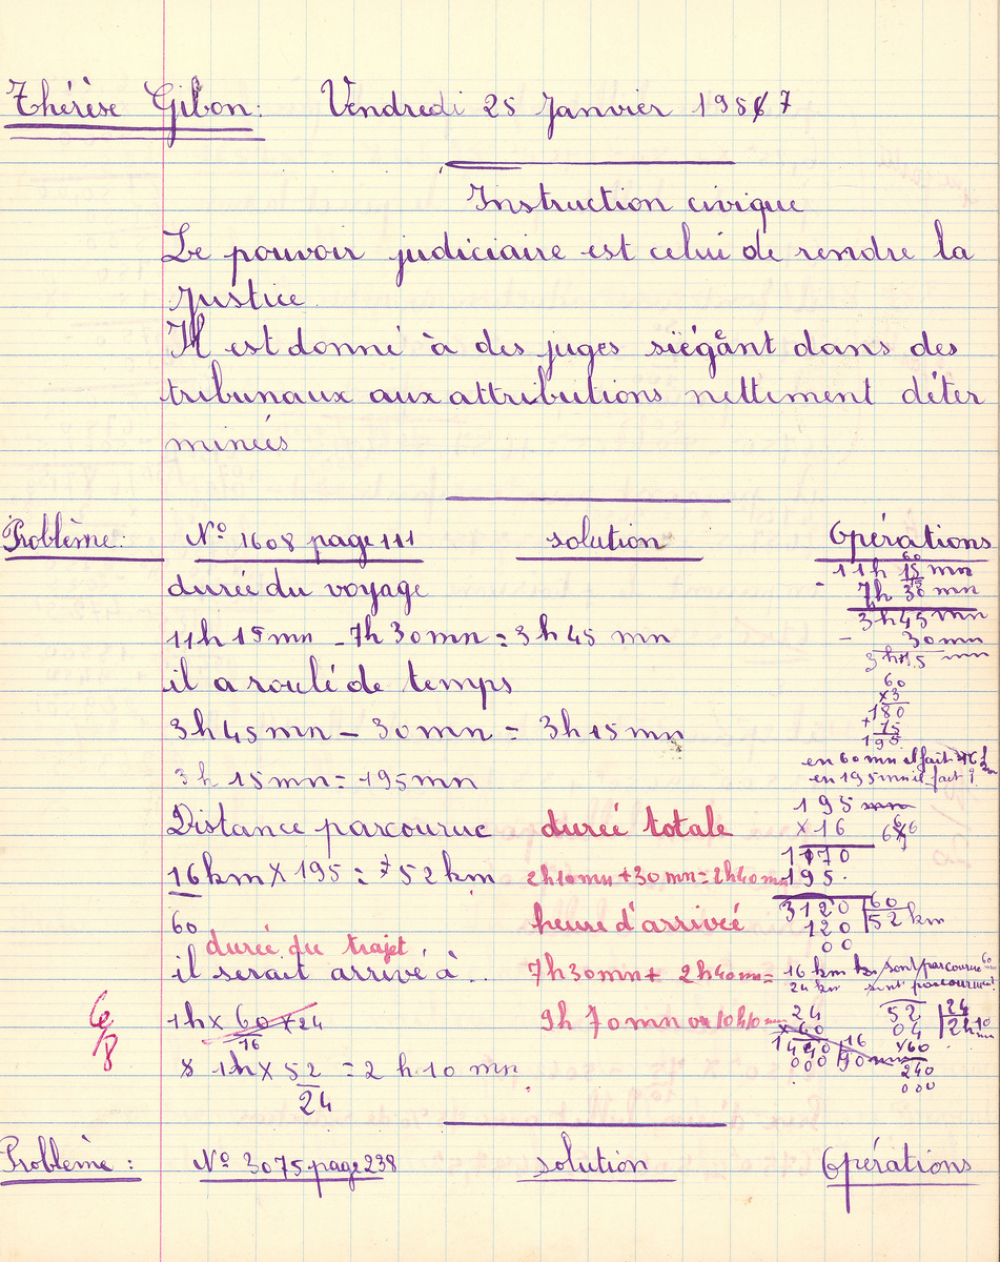 Thérèse Gibon: Vendredi 25 Janvier 1957
Instruction civique
Le pouvoir judiciaire est celui de rendre la
justice.
Il est donné à des juges siégeant dans des
tribunaux aux attributions nettement déter
minées
Problème: N° 1608 page 111 solution Opérations
durée du voyage
11h 15mn - 7h 30mn = 3h 45 mn
il a roulé de temps
3h 45mn - 30mn = 3h 15mn
3h 15mn = 195mn
Distance parcourue
16km X 195 = 52 km
60
il serait arrivé à ..
1h x 60 x 24
16
1h X 52 = 2 h 10 mn
24
durée du trajet
6/8
durée totale
2h10mn + 30mn = 2h40mn
heure d'arrivée
7h30mn + 2h40mn =
9h 70mn ou 10h10mn
60
11h 15 mn
- 7h 30 mn
3h45mn
- 30mn
3h15 mn
60
x3
180
+ 15
195
en 60 mn il fait 16
en 195mn il fait ?
195 mn
x16
1170
195.
3120 60
120 52 km
00
16 km sont parcourus 60
24 km sont parcourus
24
x60
1440 16
000 90 mn
52 24
04 2h10
mn
x60
240
000
Problème : N° 3075 page 238 solution Opérations